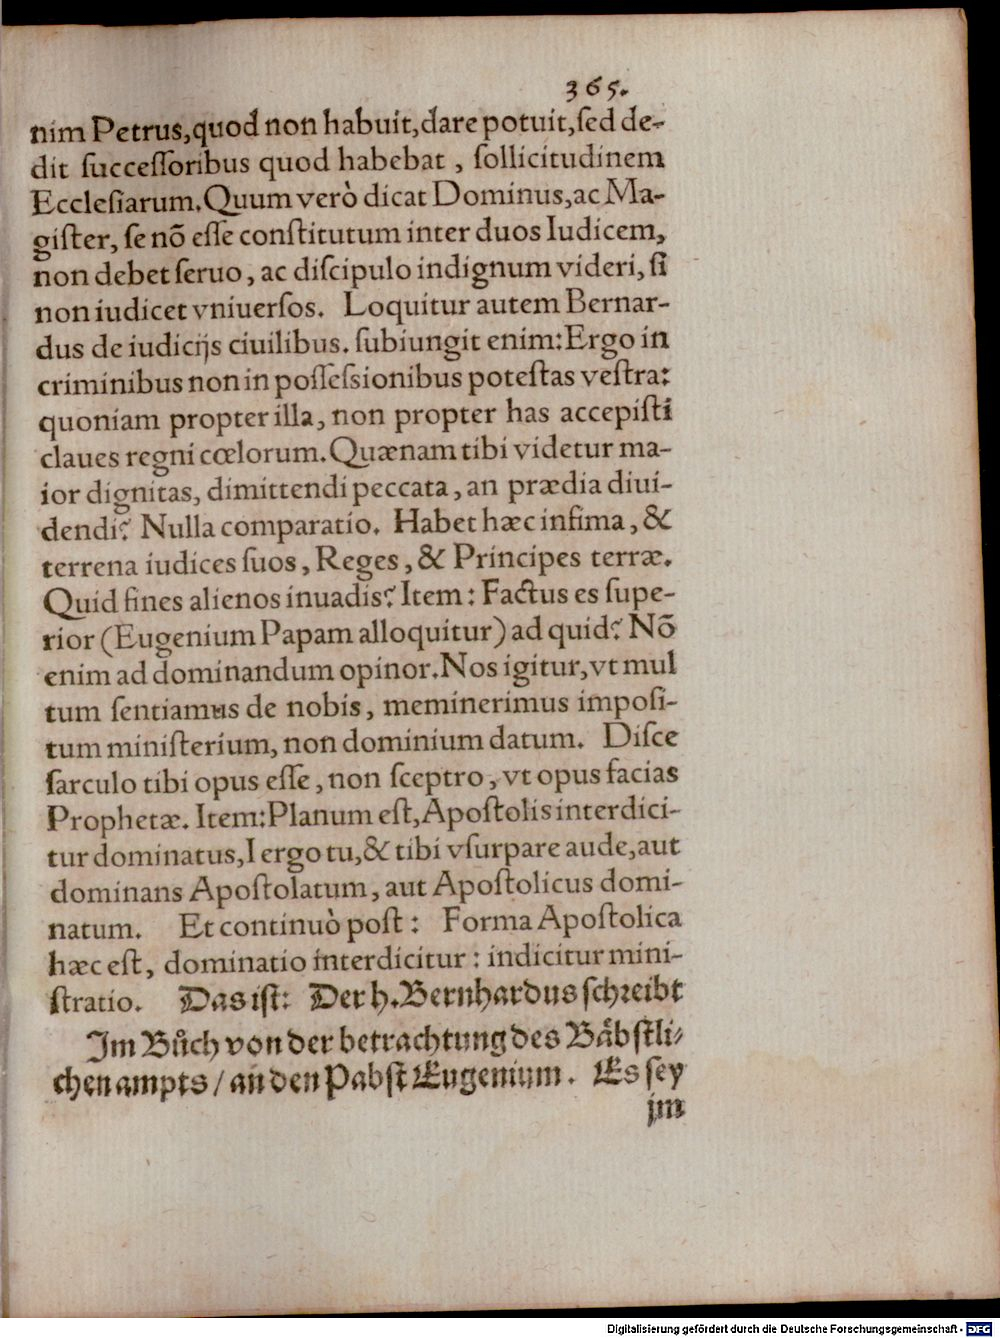 365.
nim Petrus,quod non habuit,dare potuit,ſed de-
dit ſucceſſoribus quod habebat , ſollicitudinem
Eccleſiarum.Quum verò dicat Dominus,ac Ma-
giſter, ſe nõ eſſe conſtitutum inter duos Iudicem,
non debet ſeruo , ac diſcipulo indignum videri, ſi
non iudicet vniuerſos. Loquitur autem Bernar-
dus de iudicijs ciuilibus. ſubiungit enim:Ergo in
criminibus non in poſſeſsionibus poteſtas veſtra:
quoniam propter illa, non propter has accepiſti
claues regni cœlorum.Quænam tibi videtur ma-
ior dignitas, dimittendi peccata , an prædia diui-
dendi? Nulla comparatio. Habet hæc infima , &
terrena iudices ſuos , Reges , & Principes terræ.
Quid fines alienos inuadis? Item : Factus es ſupe-
rior (Eugenium Papam alloquitur) ad quid? Nõ
enim ad dominandum opinor.Nos igitur,vt mul
tum ſentiamus de nobis, meminerimus impoſi-
tum miniſterium, non dominium datum. Diſce
ſarculo tibi opus eſſe , non ſceptro , vt opus facias
Prophetæ. Item:Planum eſt,Apoſtolis interdici-
tur dominatus,I ergo tu,& tibi vſurpare aude,aut
dominans Apoſtolatum, aut Apoſtolicus domi-
natum. Et continuò poſt : Forma Apoſtolica
hæc eſt, dominatio interdicitur : indicitur mini-
ſtratio. Das iſt: Der h. Bernhardus ſchreibt
Im Bůch von der betrachtung des Bäbſtli-
chen ampts / an den Pabſt Eugenium. Es ſey
jm
Digitalisierung gefördert durch die Deutsche Forschungsgemeinschaft - DFG